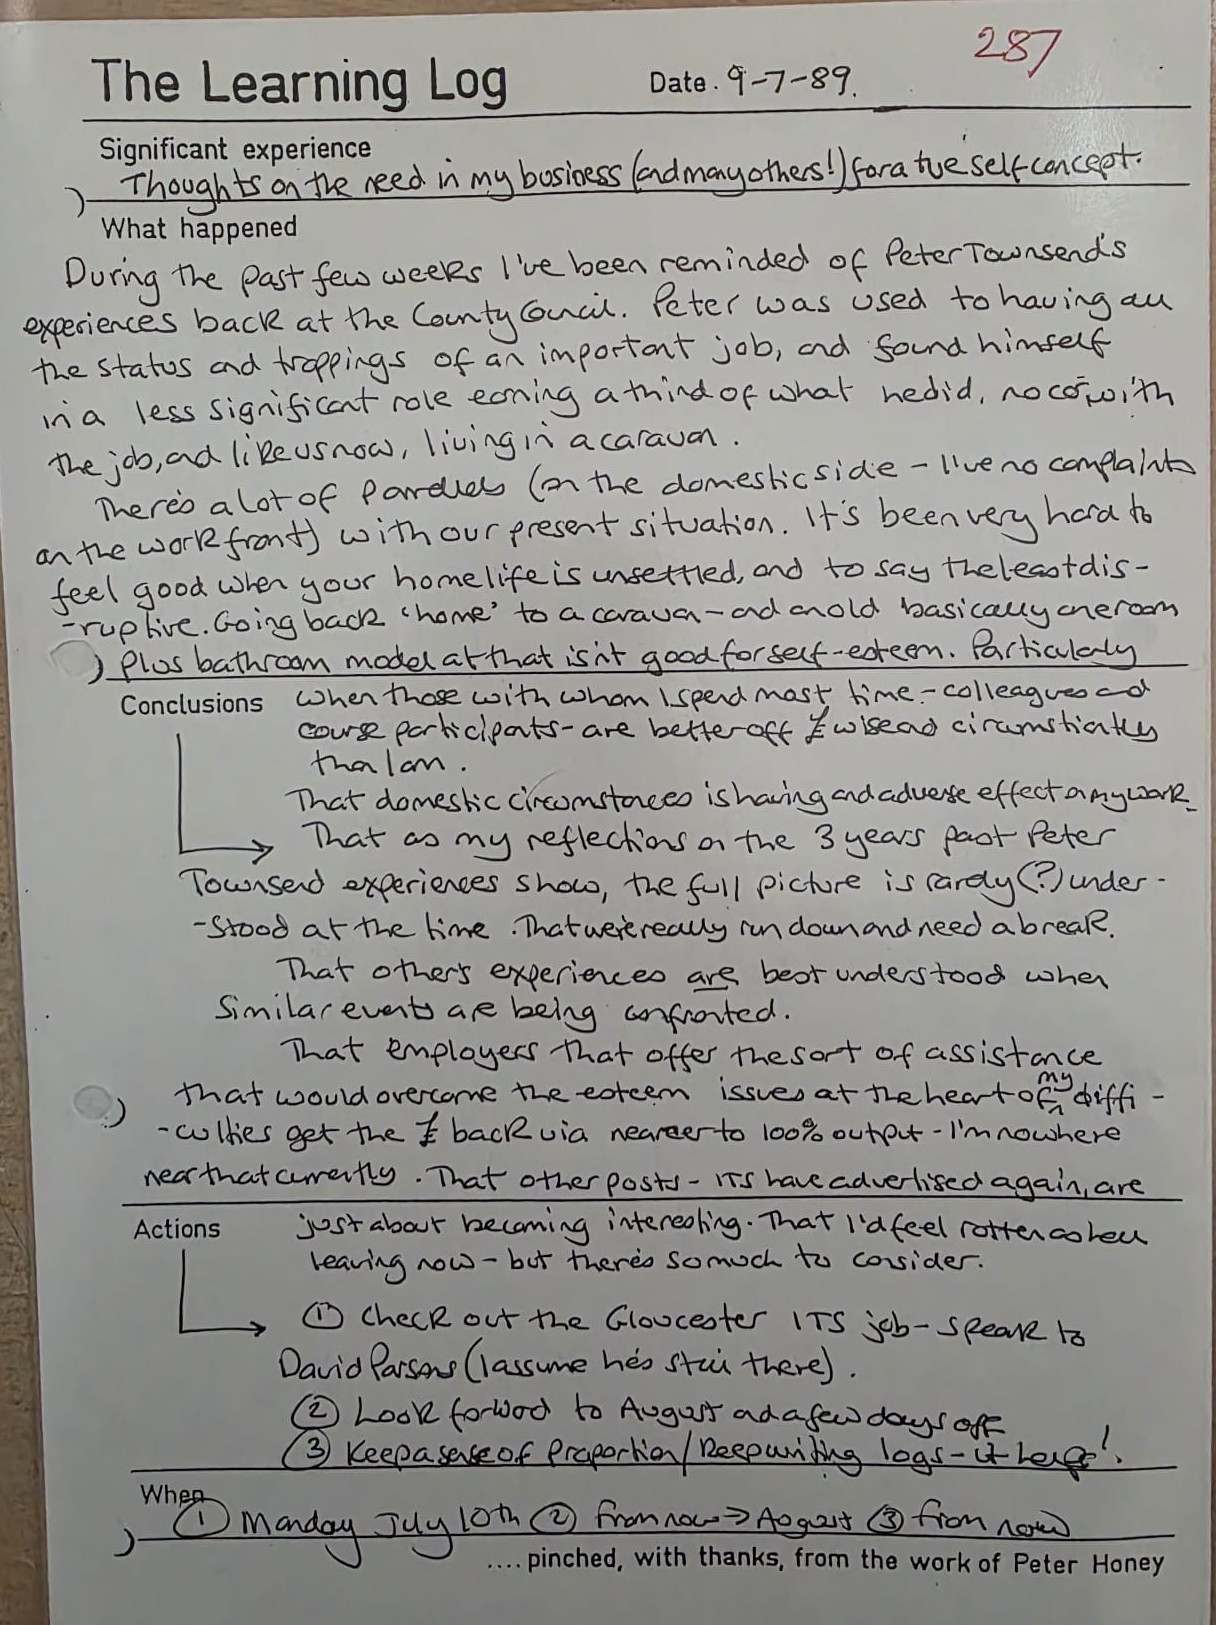 287
The Learning Log
Date. 9-7-89.
Significant experience
Thoughts on the need in my business (and many others!) for a +ve self concept.
What happened
During the past few weeks I've been reminded of Peter Townsend's
experiences back at the County Council. Peter was used to having all
the status and trappings of an important job, and found himself
in a less significant role earning a third of what he did, no car with
the job, and like us now, living in a caravan.
There's a lot of parallels (on the domestic side - I've no complaints
on the work front) with our present situation. It's been very hard to
feel good when your home life is unsettled, and to say the least dis-
-ruptive. Going back 'home' to a caravan - and an old basically one room
plus bathroom model at that isn't good for self-esteem. Particularly
Conclusions
when those with whom I spend most time - colleagues and
course participants - are better off £ wise and circumstantially
than I am.
That domestic circumstances is having and adverse effect on my work.
That as my reflections on the 3 years past Peter
Townsend experiences show, the full picture is rarely (?) under-
-stood at the time. That we're really run down and need a break.
That other's experiences are best understood when
similar events are being confronted.
That employers that offer the sort of assistance
that would overcome the esteem issues at the heart of my diffi-
-culties get the £ back via nearer to 100% output - I'm nowhere
near that currently. That other posts - ITS have advertised again, are
Actions
just about becoming interesting. That I'd feel rotten as hell
leaving now - but there's so much to consider.
① Check out the Gloucester ITS job - speak to
David Parsons (I assume he's still there).
② Look forward to August and a few days off
③ Keep a sense of proportion/keep writing logs - it helps!
When
① Monday July 10th ② from now → August ③ from now
.... pinched, with thanks, from the work of Peter Honey